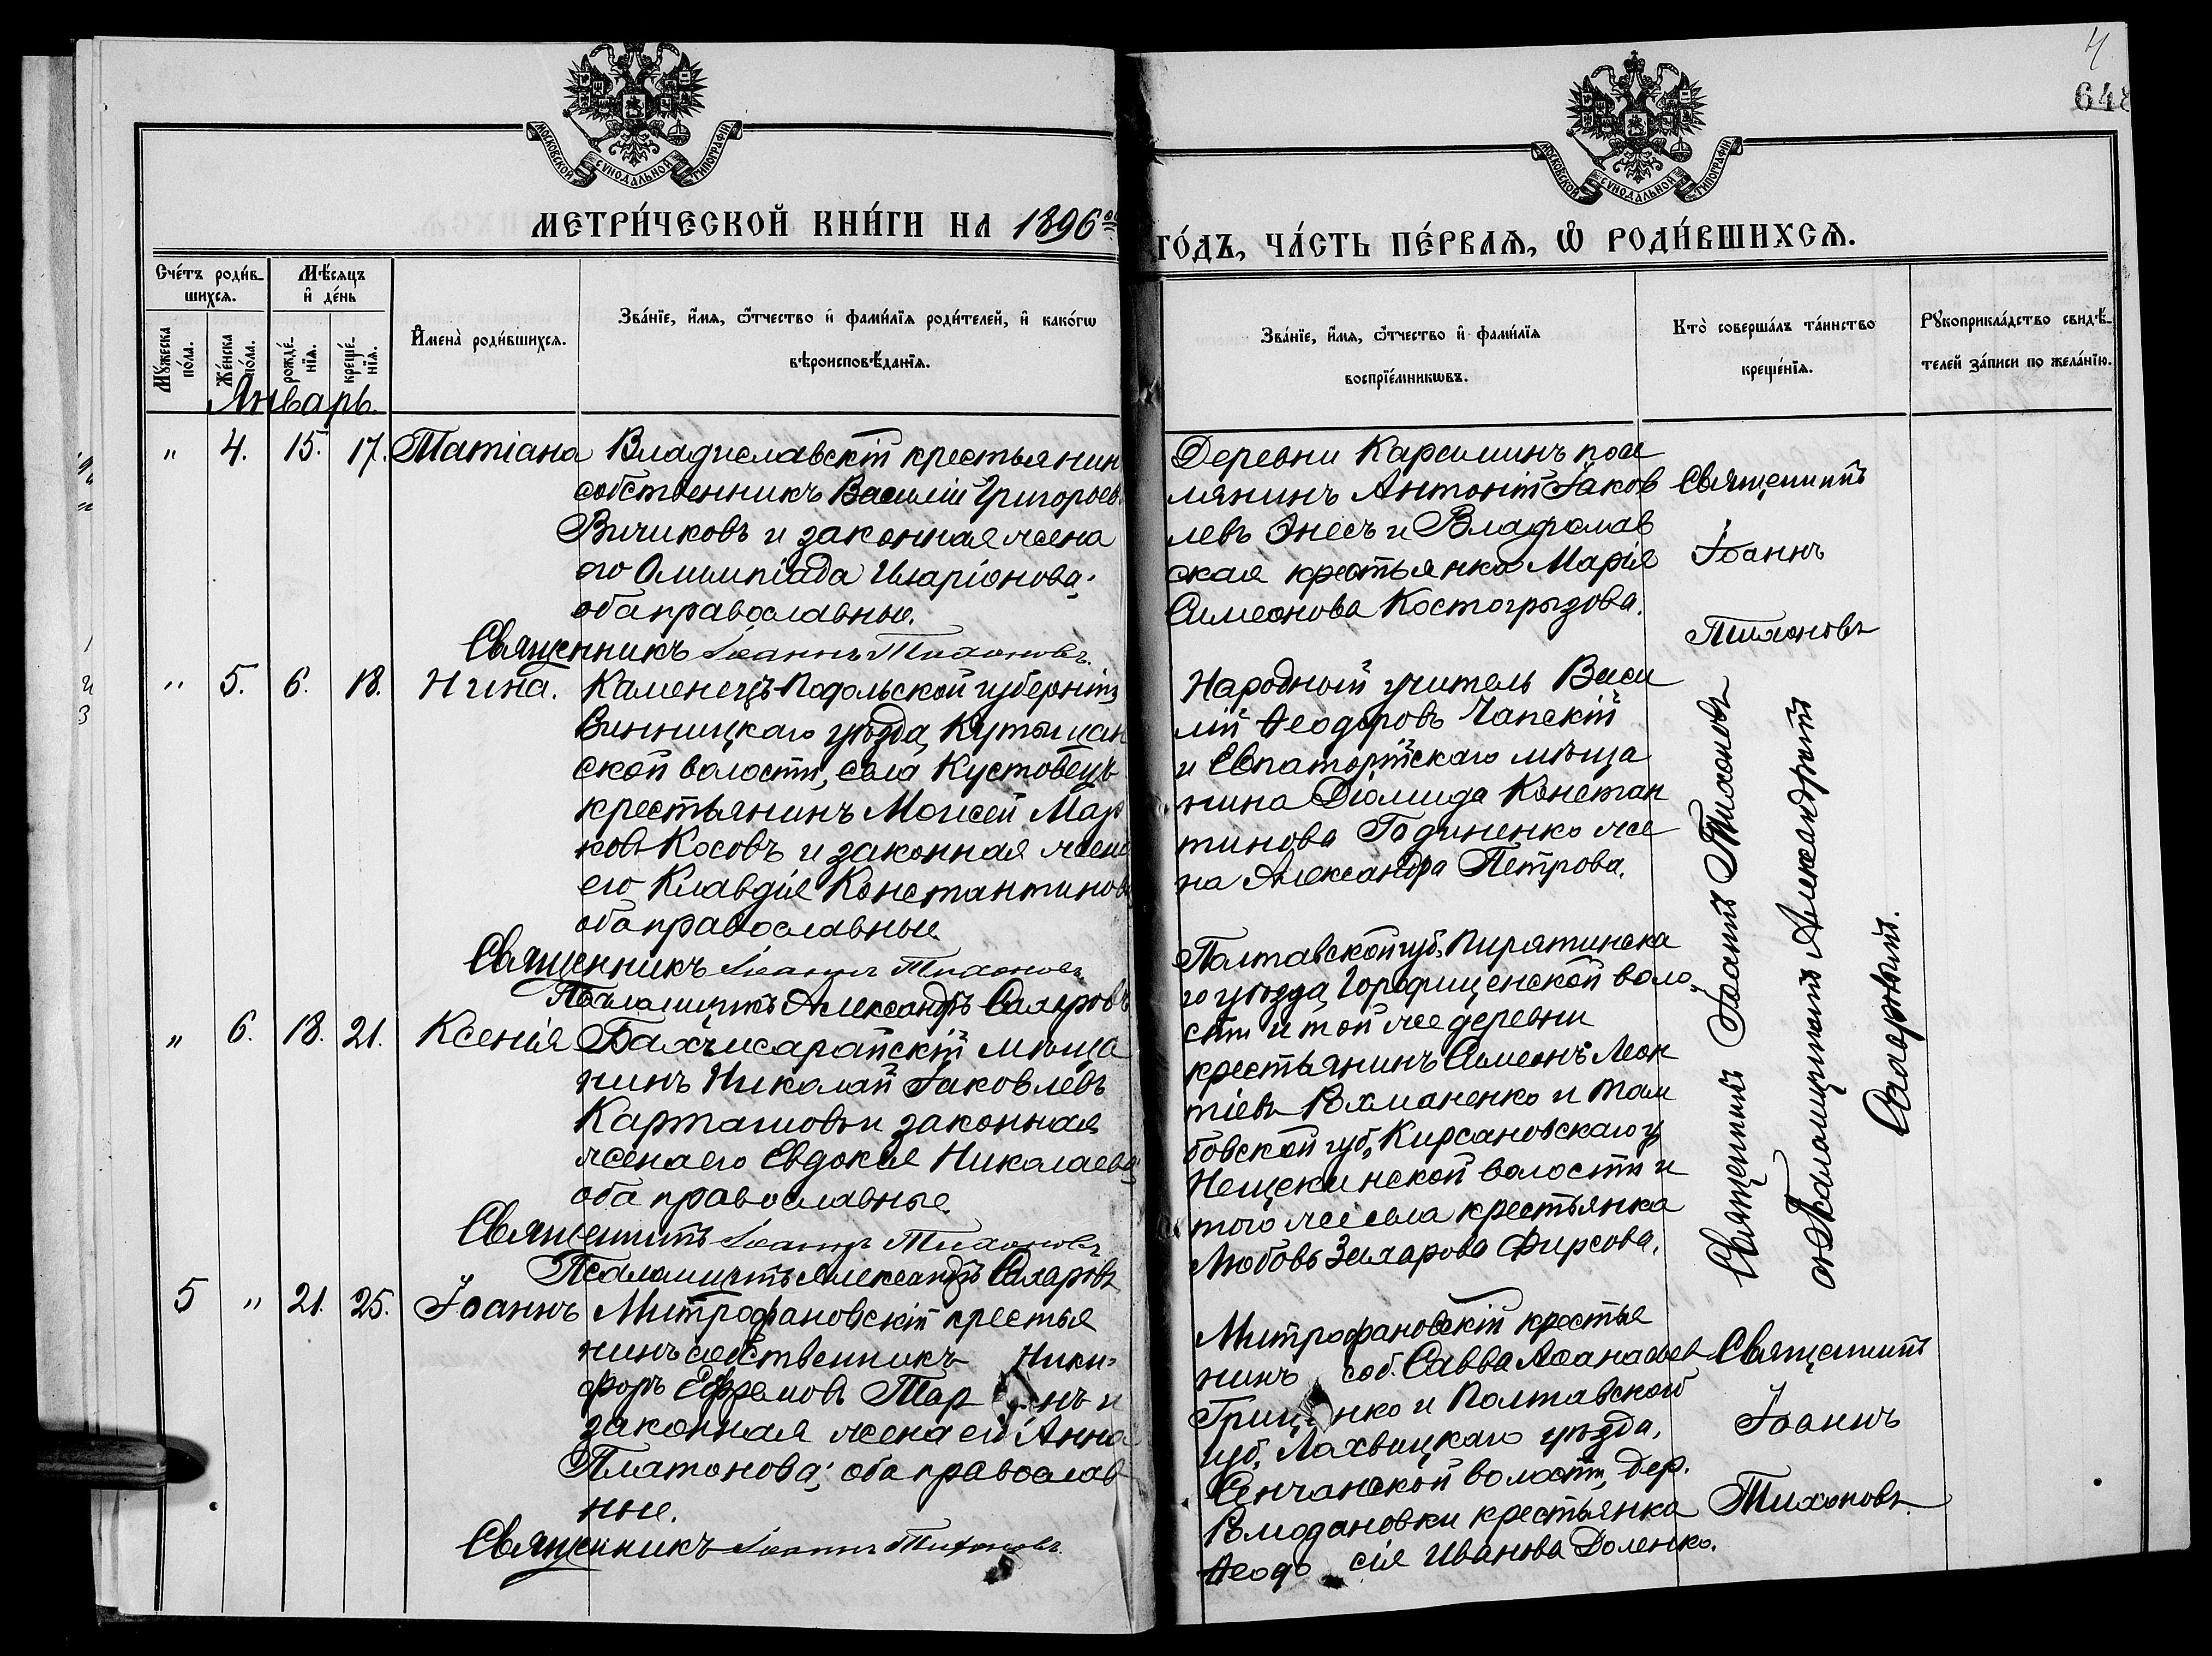 4
648
МОСКОВСКОЙ СѴНОДАЛЬНОЙ ТИПОГРАФІИ
МОСКОВСКОЙ СѴНОДАЛЬНОЙ ТИПОГРАФІИ
МЕТРИ́ЧЕСКОЙ КНИ́ГИ НА 1896
ГО́ДЪ, ЧА́СТЬ ПЕ́РВАѦ, Ѡ҆ РОДИ́ВШИХСѦ.
Сче́тъ роди́в-
шихсѧ.
Мѣ́сѧцъ
и҆ де́нь
Мꙋ́жеска
по́ла.
Же́нска
по́ла.
рожде́-
нїѧ.
креще́-
нїѧ.
И҆мена̀ роди́вшихсѧ.
Зва́нїе, и҆́мѧ, ѻ҆́тчество и҆ фами́лїѧ роди́телей, и҆ како́гѡ
вѣроисповѣ́данїѧ.
Зва́нїе, и҆́мѧ, ѻ҆́тчество и҆ фами́лїѧ
воспрїе́мникѡвъ.
Кто̀ соверша́лъ та́инство
креще́нїѧ.
Рꙋкоприкла́дство свидѣ́-
телей за́писи по жела́нїю.
Январь.
" 4. 15. 17. Татіана
Владиславскій крестьянин
собственникъ Василій Григорьев
Вичиковъ и законная жена
его Олимпіада Иларіонова;
оба православные.
Священникъ Іоаннъ Тихоновъ.
Деревни
Антоній Іаков
левъ Энесъ и Владислав
ская крестьянка Марія
Симеонова Костогрызова.
Священникъ
Іоаннъ
Тихоновъ
" 5. 6. 18. Нина.
Каменецъ-Подольской губерніи,
Винницкаго уѣзда, Кутыщан
ской волости, села Кустовецъ
крестьянинъ Моисей Мар
ковъ Косовъ и законная жена
его Клавдія Константинова
оба православные.
Священникъ Іоаннъ Тихоновъ
Псаломщикъ Александръ Сахаровъ
Народный учитель Васи
лій Ѳеодоровъ Чапскій
и Евпаторійскаго мѣща
нина Діомида Констан
тинова Годиненко же
на Александра Петрова.
Священникъ Іоаннъ Тихоновъ
съ Псаломщикомъ Александромъ
Сахаровымъ.
" 6. 18. 21. Ксенія
Бахчисарайскій мѣща
нинъ Николай Іаковлевъ
Карташовъ и законная
жена его Евдокія Николаева
оба православные.
Священникъ Іоаннъ Тихоновъ
Псаломщикъ Александръ Сахаровъ
Полтавской губ. Пирятинска
го уѣзда, Городищенской воло
сти и той же деревни
крестьянинъ Симеонъ Леон
тіевъ Вахманенко и Там
бовской губ, Кирсановскаго у
волости и
того же села крестьянка
Любовь Захарова Фирсова.
5 " 21. 25. Іоаннъ
Митрофановскій крестья
нинъ собственникъ Ники-
форъ Ефремовъ Тар нъ и
законная жена его Анна
Платонова; оба православ
ные.
Священникъ Іоаннъ Тихоновъ.
Митрофановскій крестья
нинъ соб. Савва Аѳанасьев
Грищенко и Полтавской
губ, Лохвицкаго уѣзда,
Сенчанской волости, дер.
Вмодановки крестьянка
Ѳеодо сія Иванова Доленко.
Священникъ
Іоаннъ
Тихоновъ